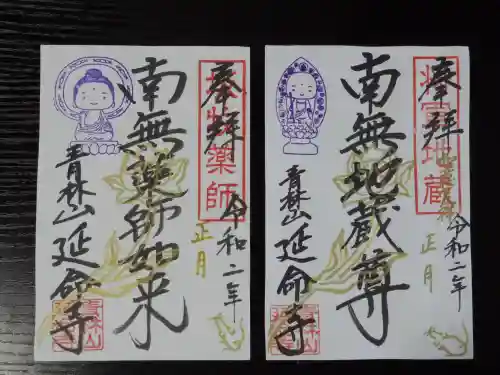 奉拝
令和二年
正月
南無地蔵尊
青林山延命寺
奉拝
薬師
令和二年
正月
南無薬師如来
青林山延命寺